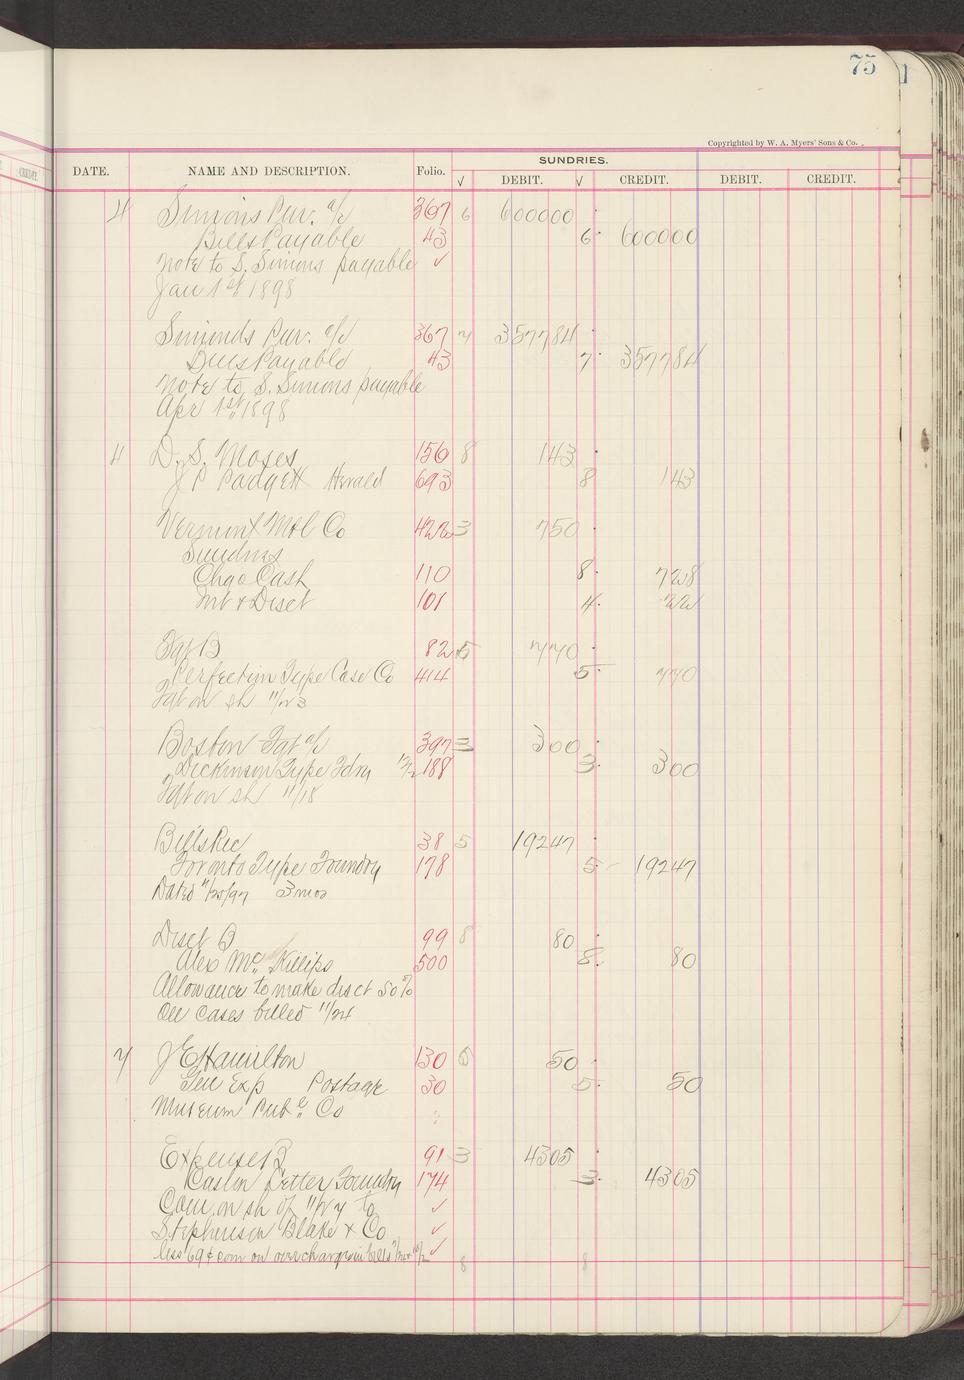 75
Copyrighted by W. A. Myers' Sons & Co.
SUNDRIES.
DATE. NAME AND DESCRIPTION. Folio. √ DEBIT. √ CREDIT. DEBIT. CREDIT.
4 Simons Pur. a/c 367 6 600000
Bills Payable 43 6 600000
Note to S. Simons payable ✓
Jan 1st 1898
Simonds Pur. a/c 367 7 357784
Bills Payable 43 7 357784
Note to S. Simons payable
Apr 1st 1898
4 D. S. Moses 156 8 143
J P Padgett Herald 693 8 143
Vermont Mbl Co 422 3 750
Sundries
Chgo Cash 110 8 728
Int & Disct 101 4 22
Fgt B 82 5 770
Perfection Type Case Co 414 5 770
Fgt on sh 11/23
Boston Fgt a/c 397 3 300
Dickinson Type Fdry 188 3 300
Fgt on sh 11/18
Bills Rec 38 5 19247
Toronto Type Foundry 178 5 19247
Dated 11/25/97 3 mos
Disct B 99 8 80
Alex Mc Killips 500 8 80
Allowance to make disct 50%
On cases billed 11/24
7 J E Hamilton 130 5 50
Gen Exp Postage 30 5 50
Museum Pub. Co
Expense B 91 3 4305
Caslon Letter Foundry 174 3 4305
Com. on sh of 11/27 to ✓
Stephenson Blake & Co ✓
less 69¢ com on overcharge in bills ✓
8 8